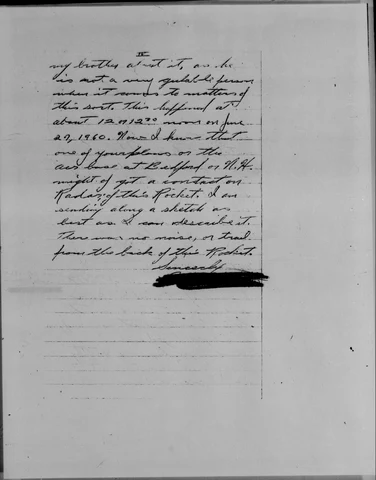 IV
my brother about it, as he
is not a very gulable person
when it comes to matters of
this sort. This happened at
about 12 or 12³⁰ noon on June
29, 1960. Now I know that
one of your planes or the
air base at Bedford or N.H.
might of got a contact on
Radar of this Rocket. I am
sending along a sketch as
best as I can describe it.
There was no noise, or trail
from the back of this Rocket.
Sincerely